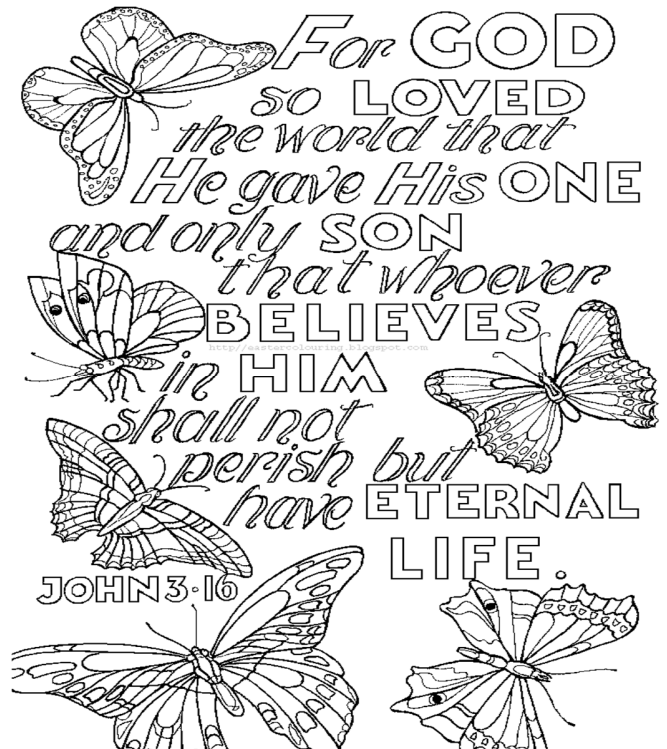 For GOD
so LOVED
the world that
He gave His ONE
and only SON
that whoever
BELIEVES
http://eastercolouring.blogspot.com
in HIM
shall not
perish but
have ETERNAL
LIFE.
JOHN 3·16